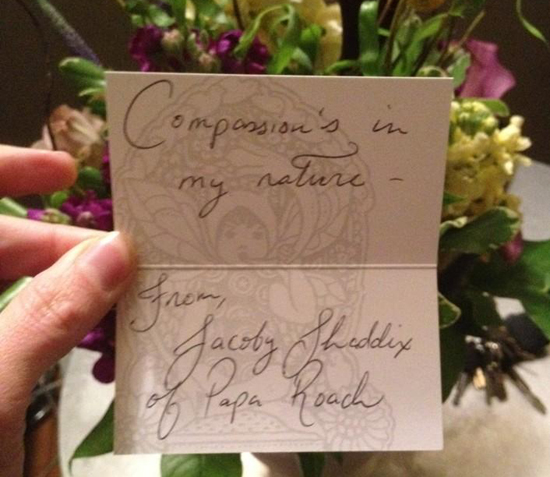 Compassion's in
my nature –
From,
Jacoby Shaddix
of Papa Roach